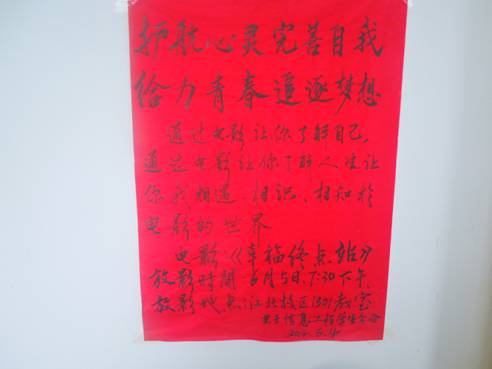 护航心灵完善自我
给力青春追逐梦想
通过电影让你了解自己,
通过电影让你了解人生让
你我相遇、相识、相知于
电影的世界
电影:《幸福终点站》
放影时间:6月5日,7:30下午
放影地点:江北校区1301教室
电子信息工程学生分会